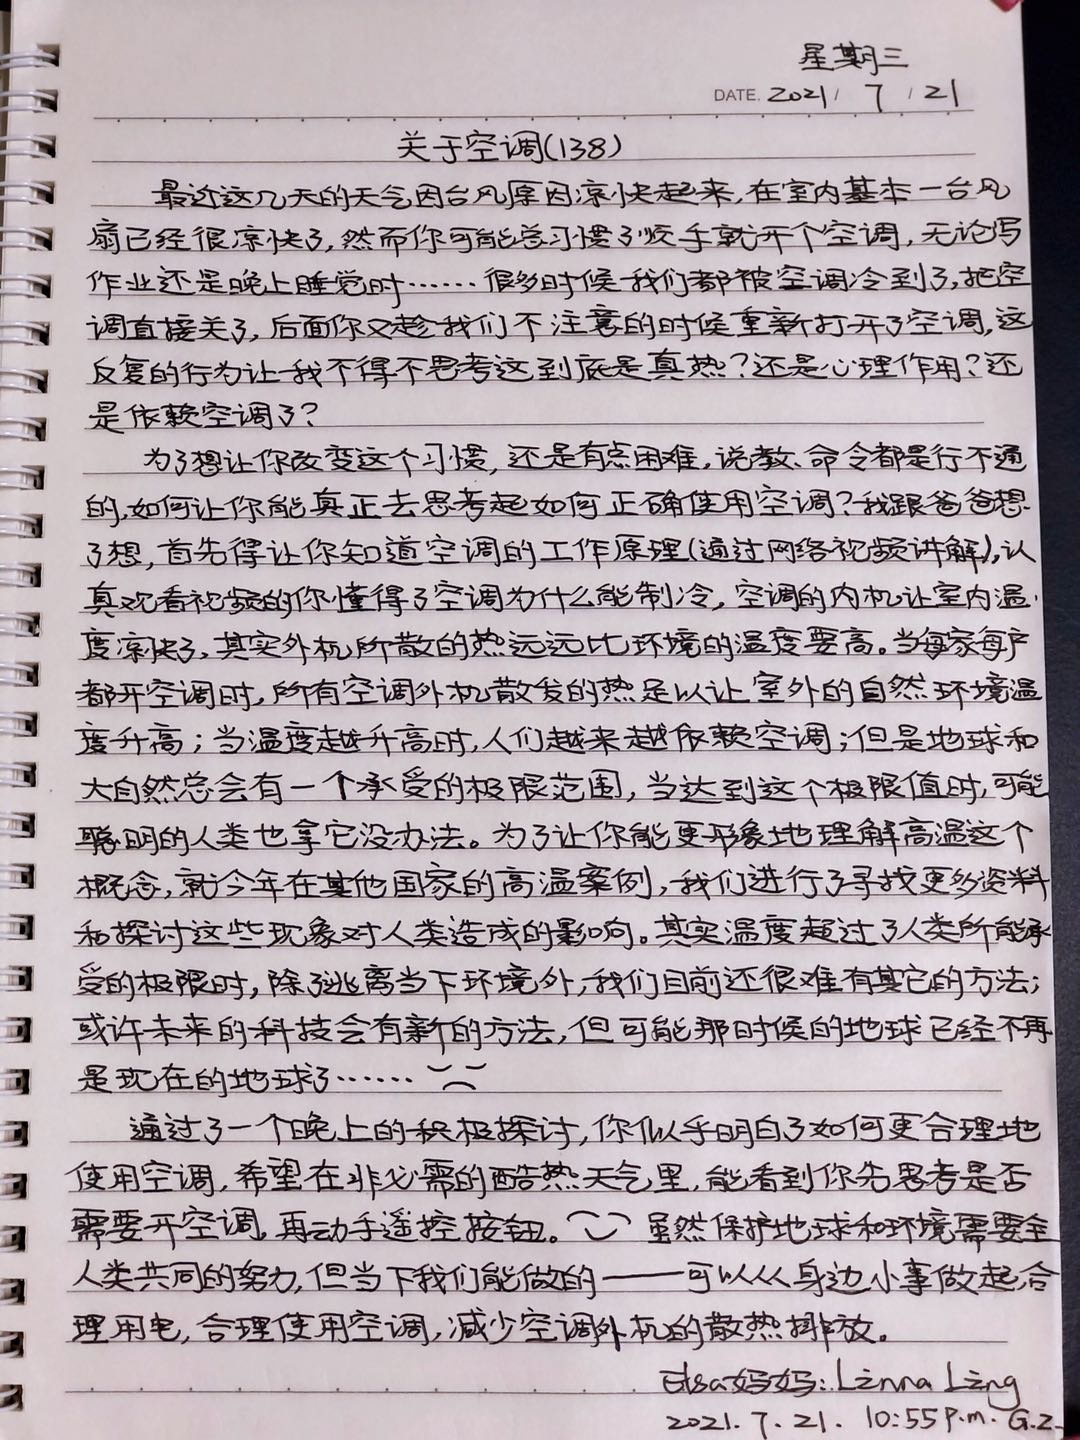 星期三
DATE. 2021 / 7 / 21
关于空调(138)
最近这几天的天气因台风原因凉快起来,在室内基本一台风
扇已经很凉快了,然而你可能当习惯了顺手就开个空调,无论写
作业还是晚上睡觉时……很多时候我们都被空调冷到了,把空
调直接关了,后面你又趁我们不注意的时候重新打开了空调,这
反复的行为让我不得不思考这到底是真热?还是心理作用?还
是依赖空调了?
为了想让你改变这个习惯,还是有点困难,说教、命令都是行不通
的,如何让你能真正去思考起如何正确使用空调?我跟爸爸想
了想,首先得让你知道空调的工作原理(通过网络视频讲解),认
真观看视频的你懂得了空调为什么能制冷,空调的内机让室内温
度凉快了,其实外机所散的热远远比环境的温度要高。当每家每户
都开空调时,所有空调外机散发的热足以让室外的自然环境温
度升高;当温度越升高时,人们越来越依赖空调;但是地球和
大自然总会有一个承受的极限范围,当达到这个极限值时,可能
聪明的人类也拿它没办法。为了让你能更形象地理解高温这个
概念,就今年在其他国家的高温案例,我们进行了寻找更多资料
和探讨这些现象对人类造成的影响。其实温度超过了人类所能承
受的极限时,除了逃离当下环境外,我们目前还很难有其它的方法;
或许未来的科技会有新的方法,但可能那时候的地球已经不再
是现在的地球了……
通过了一个晚上的积极探讨,你似乎明白了如何更合理地
使用空调,希望在非必需的酷热天气里,能看到你先思考是否
需要开空调,再动手遥控按钮。虽然保护地球和环境需要全
人类共同的努力,但当下我们能做的——可以从身边小事做起,合
理用电,合理使用空调,减少空调外机的散热排放。
Elsa妈妈:Linna Ling
2021.7.21. 10:55P.m. G.Z.